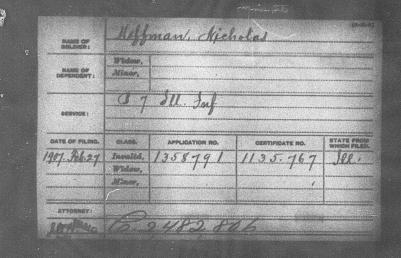 NAME OF SOLDIER: Hoffman, Nicholas
NAME OF DEPENDENT: Widow,
Minor,
SERVICE: 7 Ill. Inf
DATE OF FILING. CLASS. APPLICATION NO. CERTIFICATE NO. STATE FROM WHICH FILED.
1907. Feb. 27 Invalid, 1358791 1135.767 Ill.
Widow,
Minor,
ATTORNEY: C. 2482806